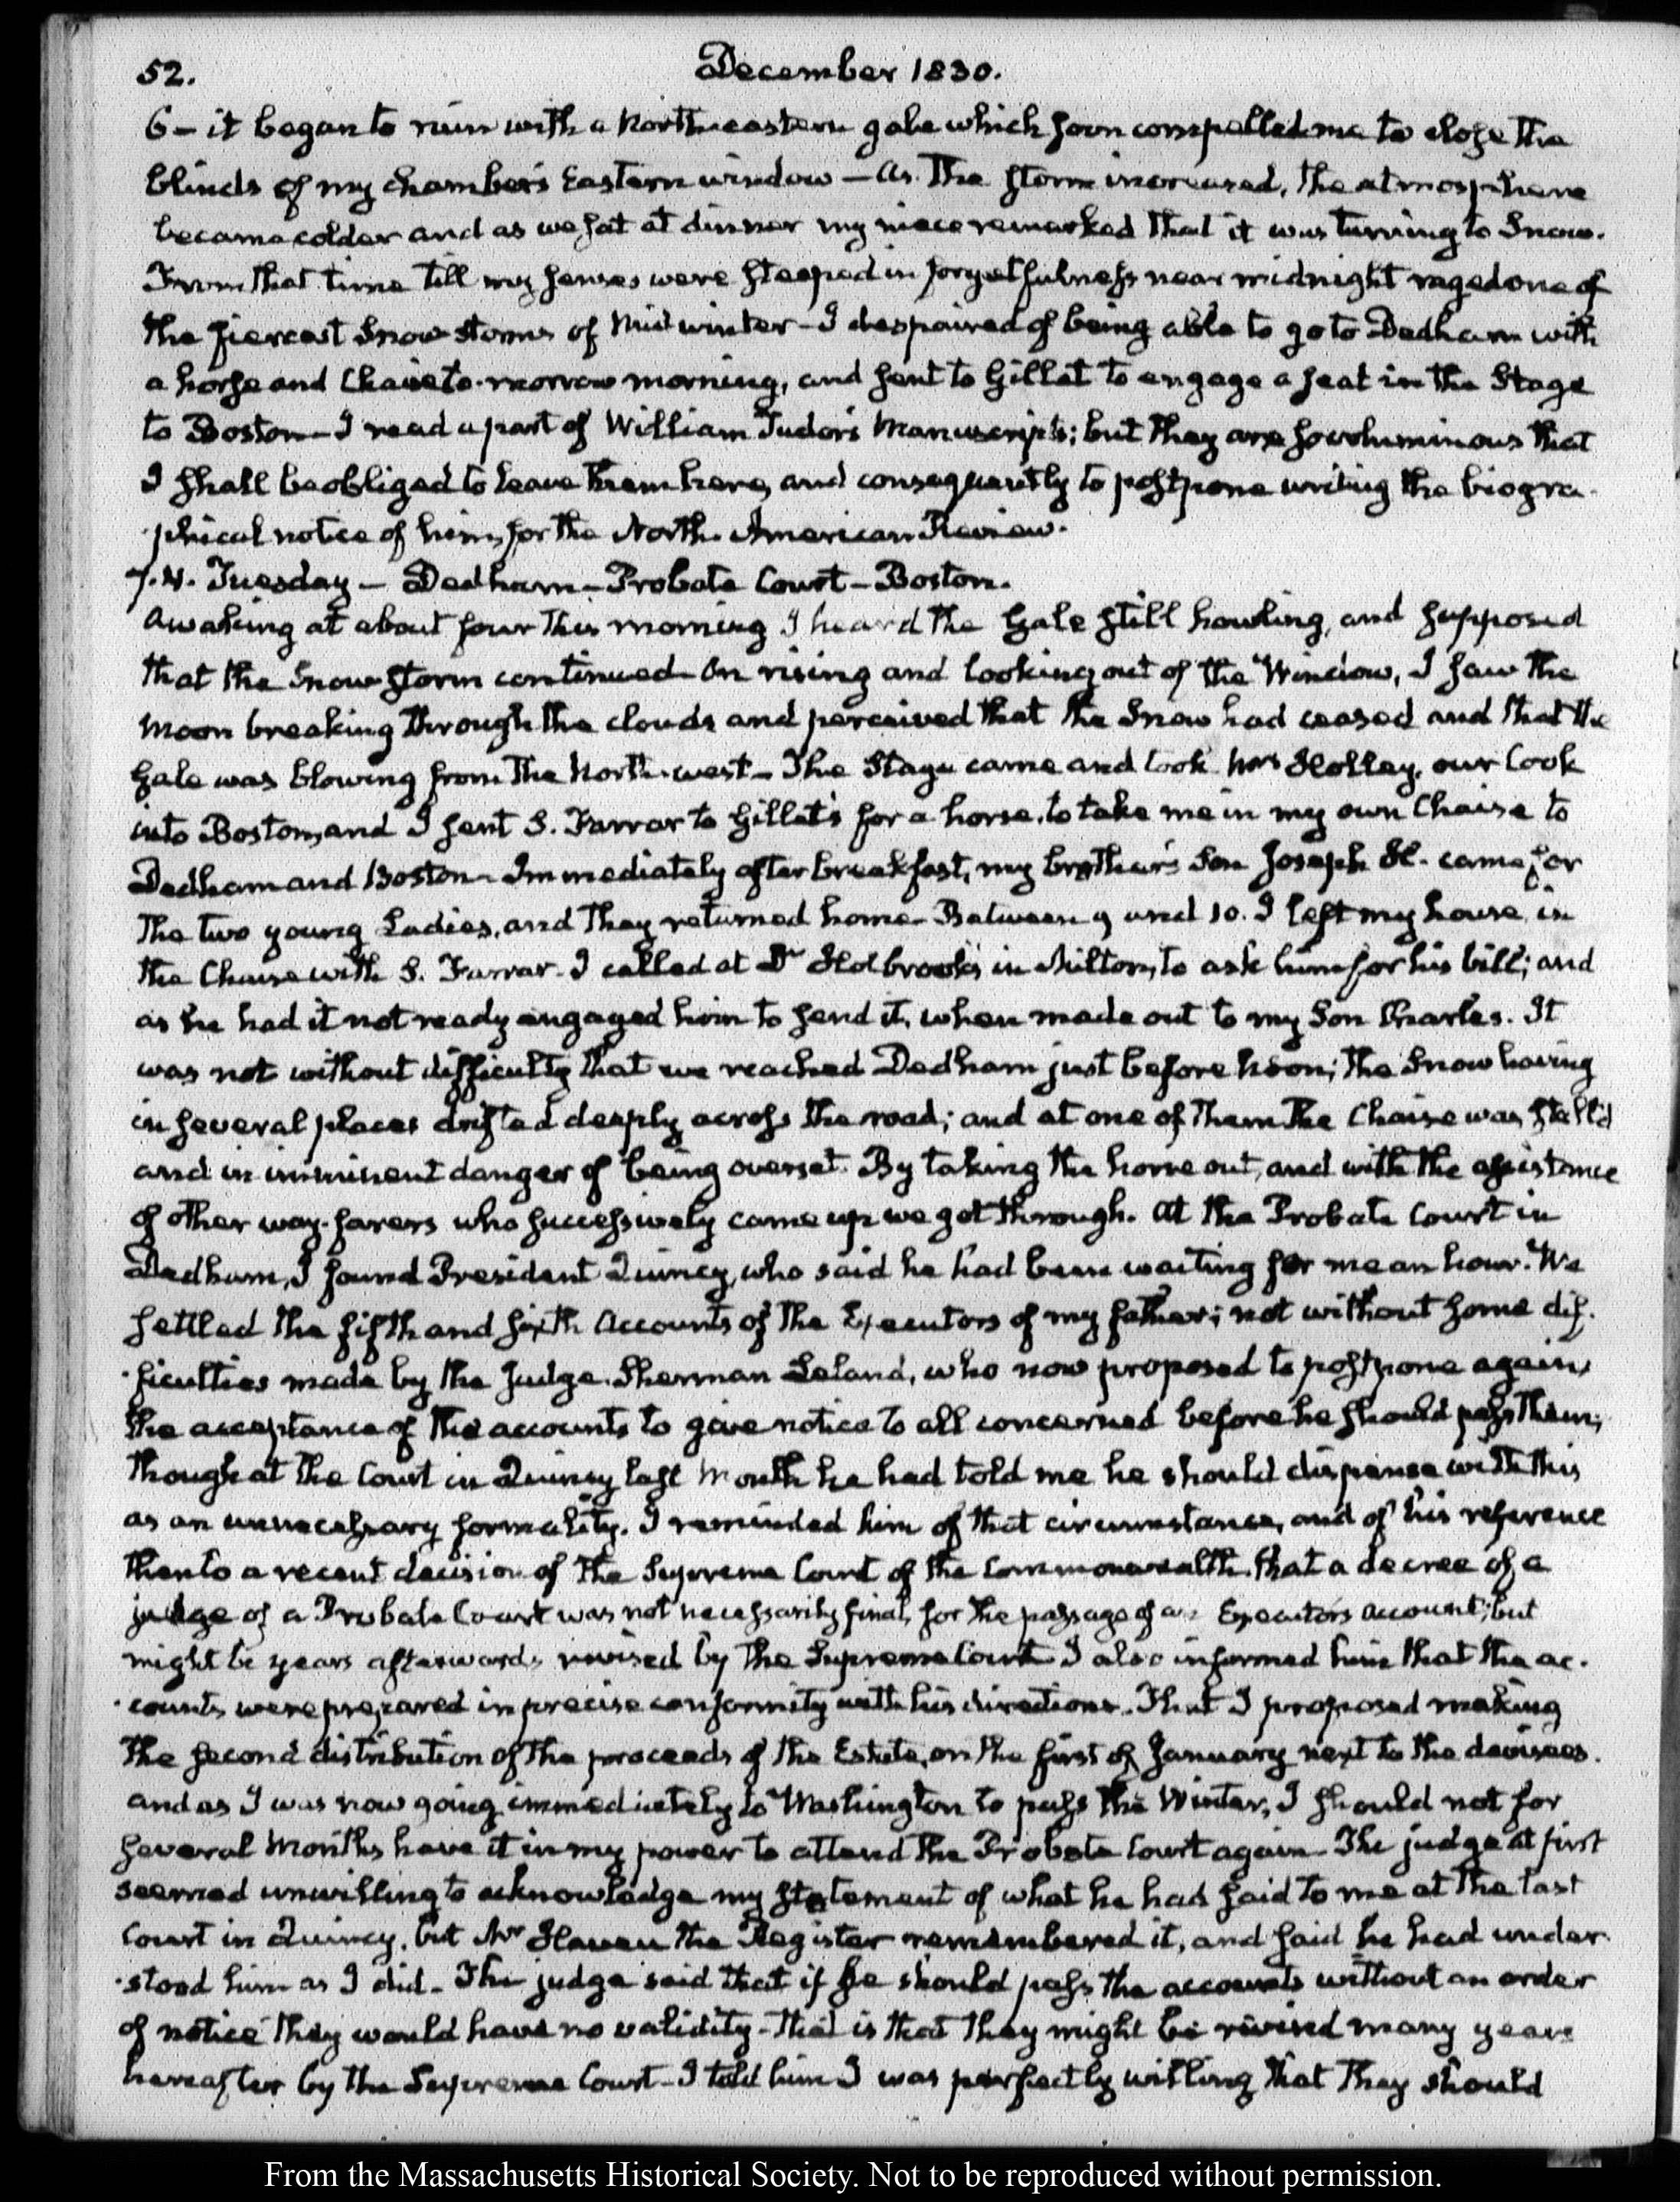 52.
December 1830.
6 – it began to rain with a North-eastern gale which soon compelled me to close the
blinds of my chamber's Eastern window – As the storm increased, the atmosphere
became colder and as we sat at dinner my niece remarked that it was turning to Snow.
From that time till my senses were steeped in forgetfulness near midnight raged one of
the fiercest Snow storms of Midwinter – I despaired of being able to go to Dedham with
a horse and Chaise to-morrow morning, and sent to Gillet to engage a seat in the Stage
to Boston – I read a part of William Tudor's Manuscripts; but they are so voluminous that
I shall be obliged to leave them here, and consequently to postpone writing the biogra-
-phical notice of him, for the North-American Review.
7. Tuesday – Dedham – Probate Court – Boston.
Awaking at about four this morning I heard the Gale still howling, and supposed
that the Snow storm continued – On rising and looking out of the Window, I saw the
Moon breaking through the clouds and perceived that the Snow had ceased and that the
Gale was blowing from the North-west – The Stage came and took Mrs Holley, our Cook
into Boston, and I sent S. Farrar to Gillet's for a horse, to take me in my own Chaise to
Dedham and Boston – Immediately after breakfast, my brother's Son Joseph H. came for
the two young Ladies, and they returned home – Between 9 and 10. I left my house, in
the Chaise with S. Farrar – I called at Dr Holbrook's in Milton, to ask him for his bill; and
as he had it not ready engaged him to send it, when made out to my Son Charles. It
was not without difficulty that we reached Dedham just before Noon; the Snow having
in several places drifted deeply across the road; and at one of them the Chaise was stall'd
and in imminent danger of being overset. By taking the horse out, and with the assistance
of other way-farers who successively came up we got through. At the Probate Court in
Dedham, I found President Quincy, who said he had been waiting for me an hour. We
settled the fifth and sixth Accounts of the Executors of my father; not without some dif-
-ficulties made by the Judge, Sherman Leland, who now proposed to postpone again,
the acceptance of the accounts to give notice to all concerned before he should pass them;
though at the Court in Quincy last Month he had told me he should dispense with this
as an unnecessary formality. I reminded him of that circumstance, and of his reference
then to a recent decision of the Supreme Court of the Commonwealth, that a decree of a
judge of a Probate Court was not necessarily final, for the passage of an Executor's account; but
might be years afterwards revised by the Supreme Court – I also informed him that the ac-
-counts were prepared in precise conformity with his directions. That I proposed making
the second distribution of the proceeds of the Estate, on the first of January next to the devisees.
and as I was now going immediately to Washington to pass the Winter, I should not for
several Months have it in my power to attend the Probate Court again – The judge at first
seemed unwilling to acknowledge my statement of what he had said to me at the last
Court in Quincy, but Mr Haven the Register remembered it, and said he had under-
-stood him as I did – The judge said that if he should pass the accounts without an order
of notice they would have no validity – that is that they might be revised many years
hereafter by the Supreme Court – I told him I was perfectly willing that they should
From the Massachusetts Historical Society. Not to be reproduced without permission.